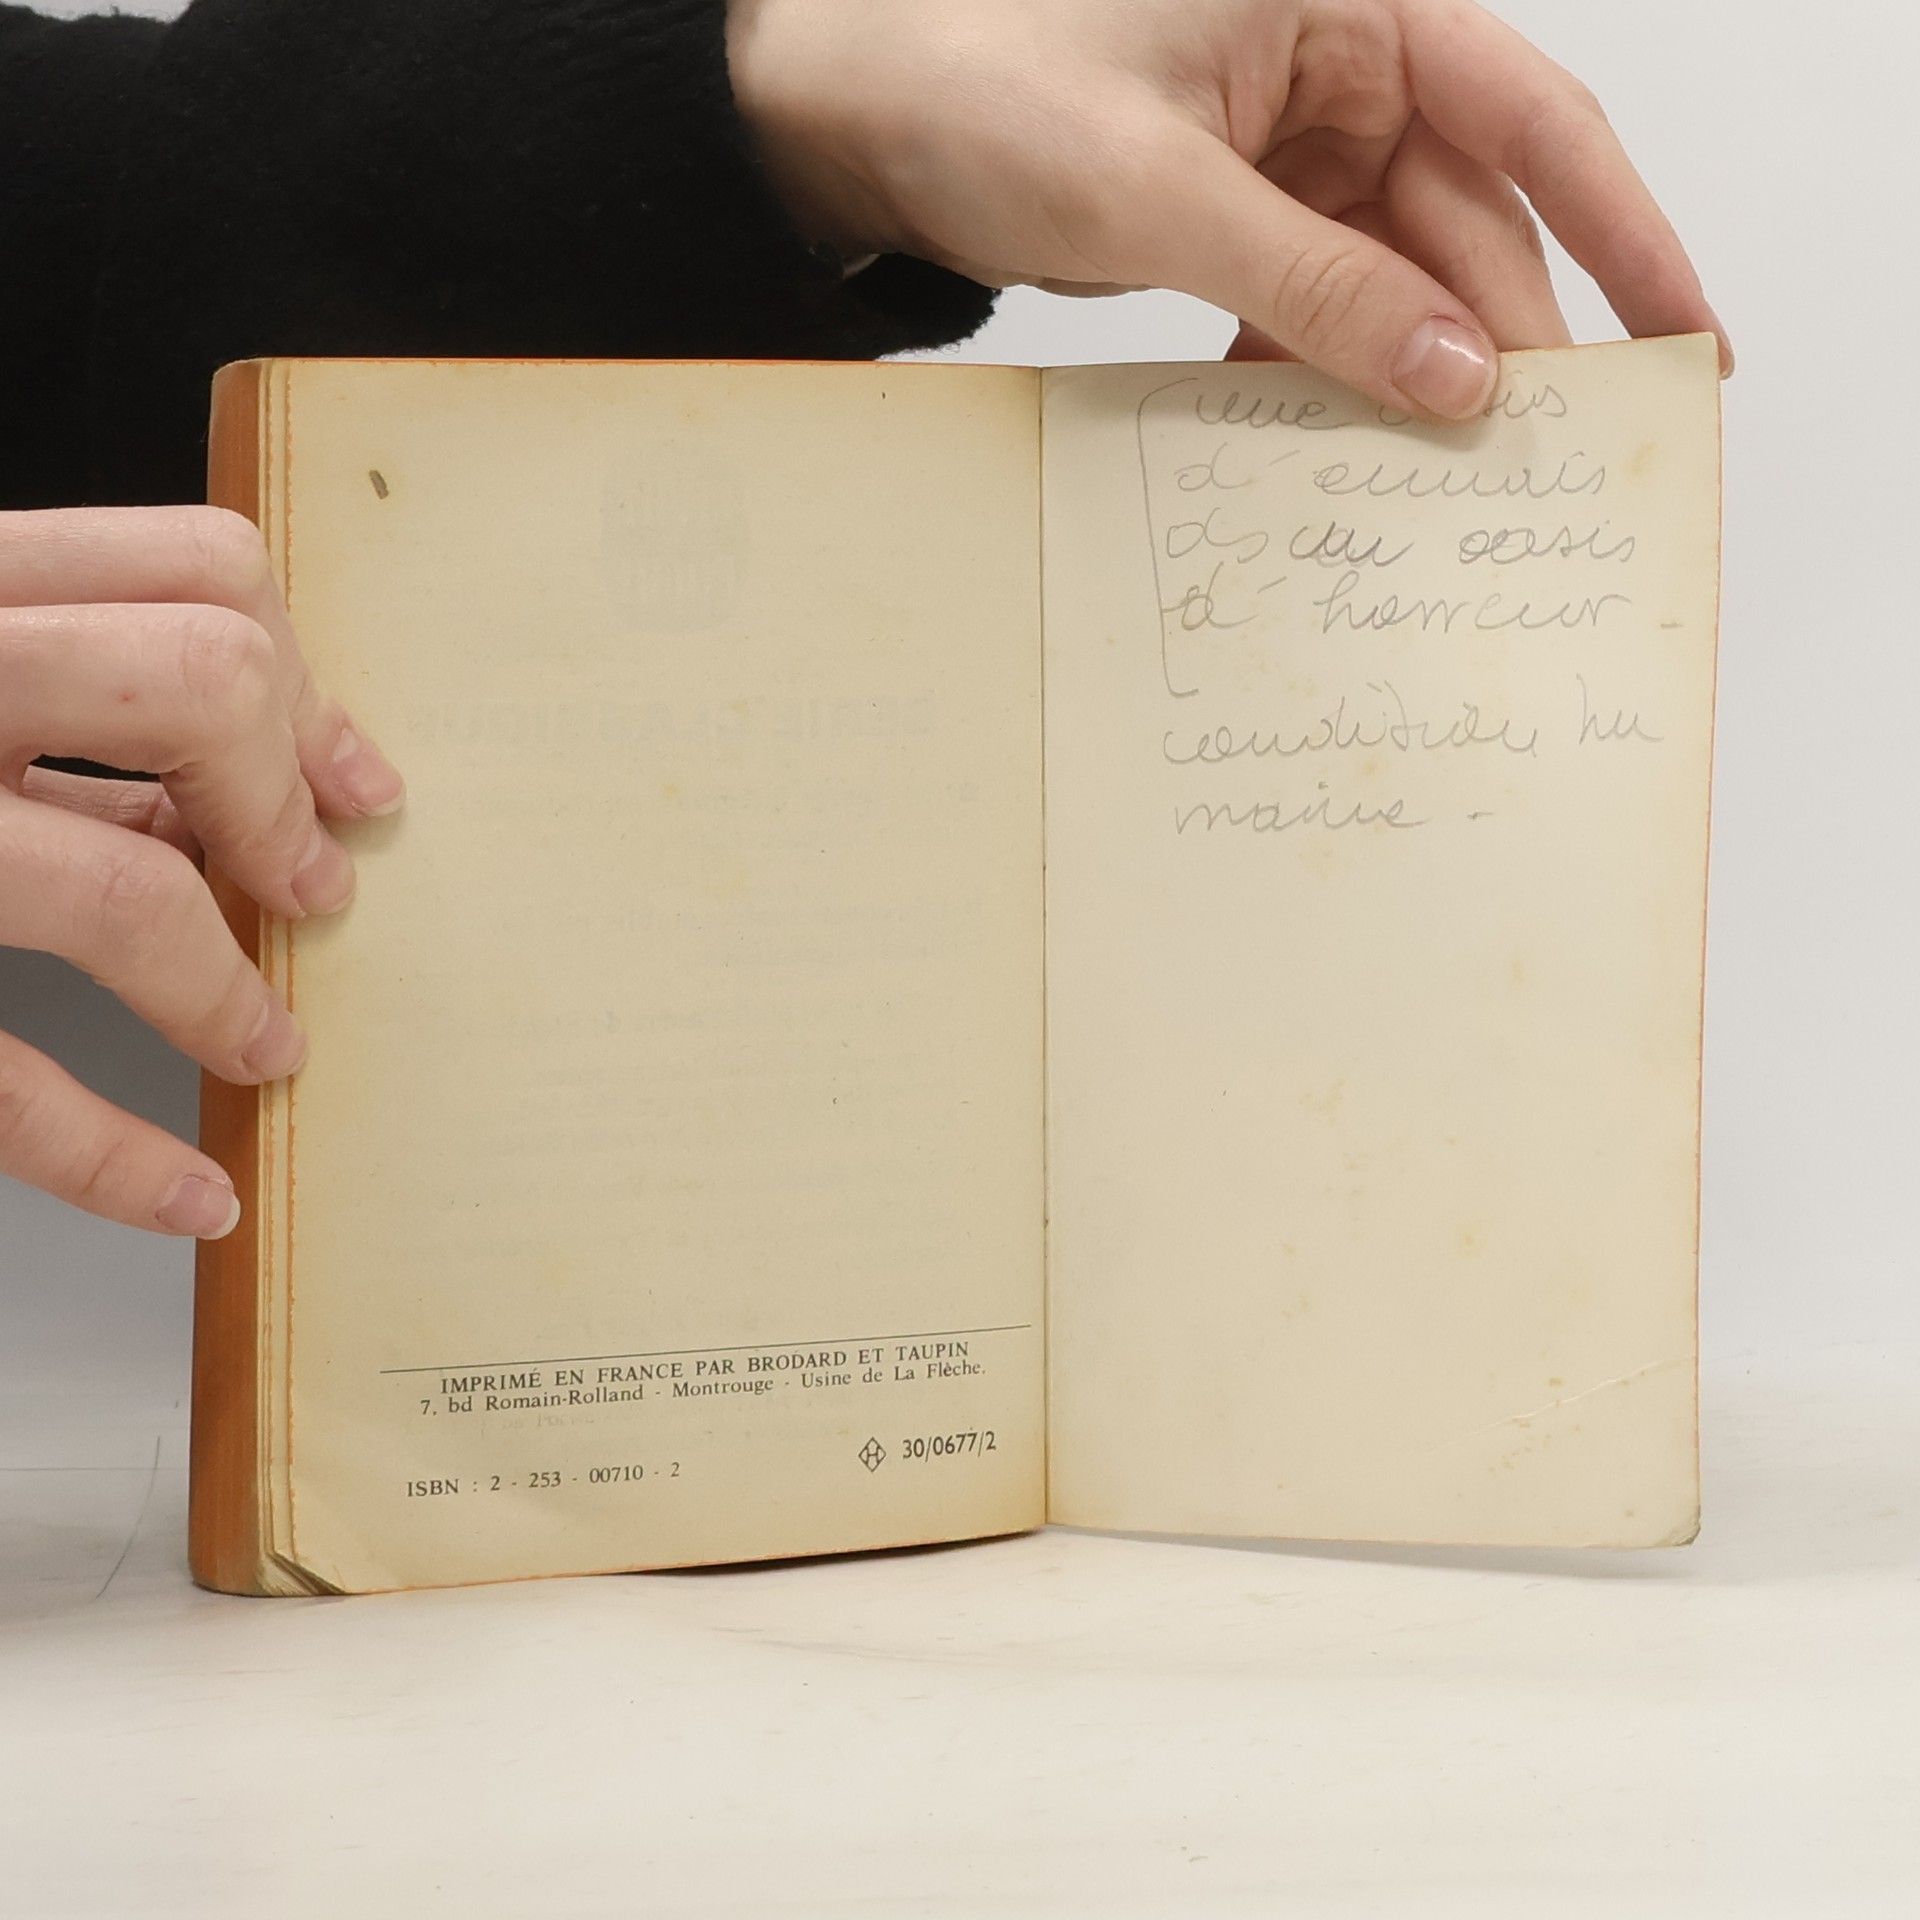 IMPRIMÉ EN FRANCE PAR BRODARD ET TAUPIN
7, bd Romain-Rolland - Montrouge - Usine de La Flèche.
ISBN : 2 - 253 - 00710 - 2
30/0677/2
une
d'ennuis
ds un oasis
d'horreur -
condition hu
maine -